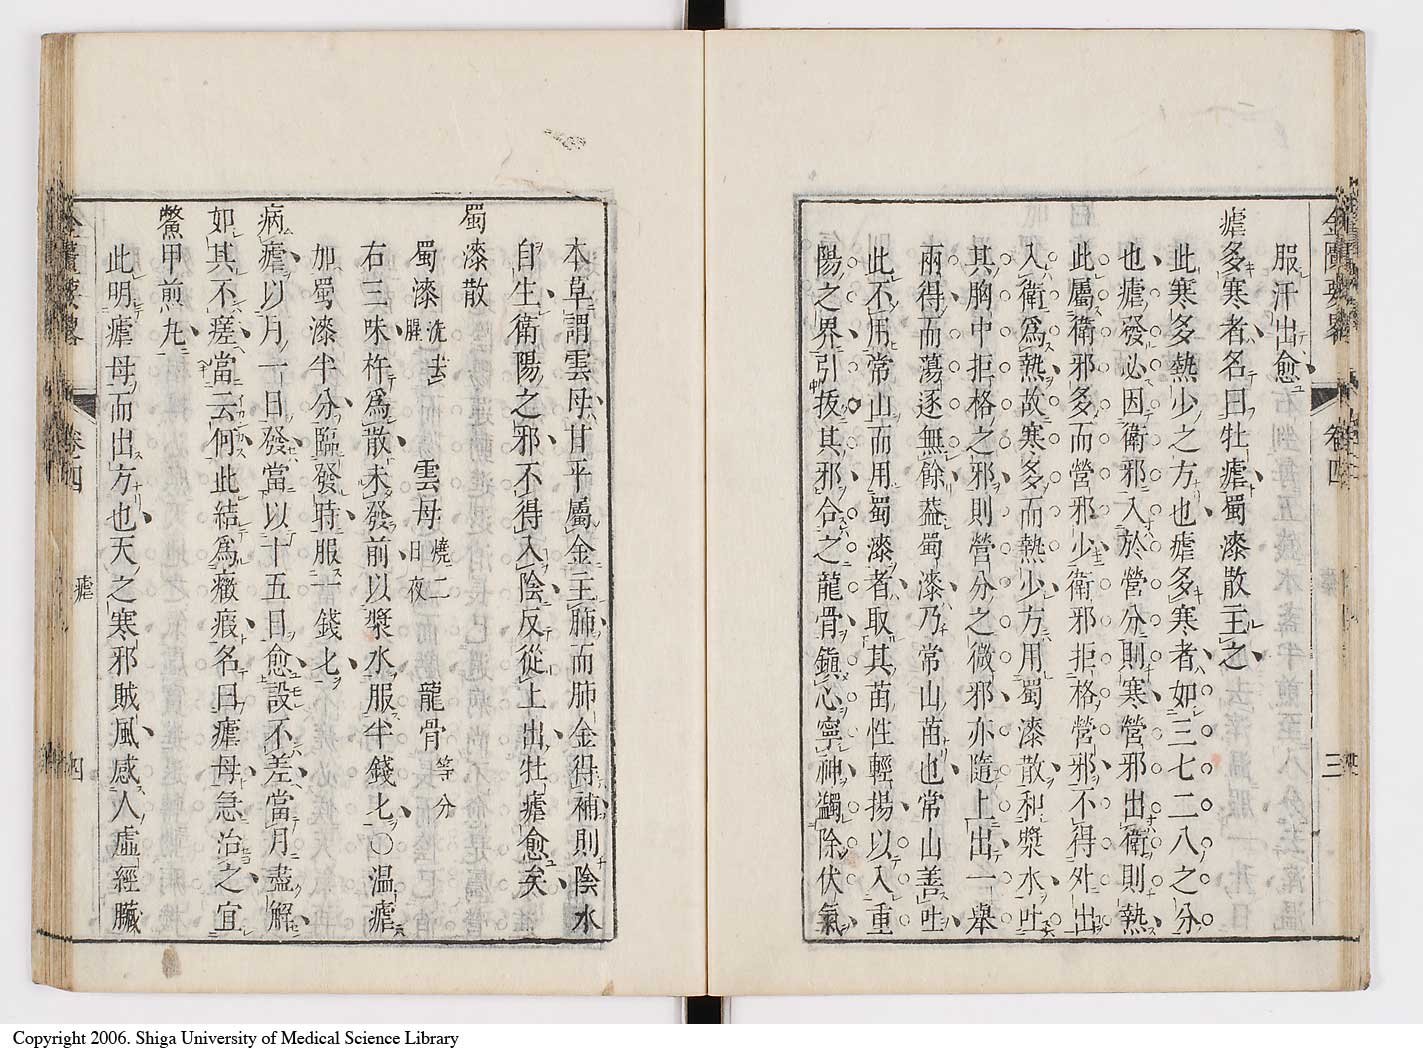 服汗出愈
瘧多寒者名曰牡瘧蜀漆散主之
此寒多熱少之方也瘧多寒者如三七二八之分
也瘧發必因衛邪入於營分則寒營邪出衛則熱
此屬衛邪多而營邪少衛邪拒格營邪不得外出
入衛為熱故寒多而熱少方用蜀漆散和漿水吐
其胸中拒格之邪則營分之微邪亦隨上出一舉
兩得而蕩逐無餘葢蜀漆乃常山苗也常山善吐
此不用常山而用蜀漆者取其苗性輕揚以入重
陽之界引拔其邪合之龍骨鎮心寧神蠲除伏氣
金匱要畧 卷四 三
本草謂雲母甘平屬金主肺而肺金得補則陰水
自生衛陽之邪不得入陰反從上出牡瘧愈矣
蜀漆散
蜀漆洗去腥 雲母燒二日夜 龍骨等分
右三味杵為散未發前以漿水服半錢匕〇溫瘧
加蜀漆半分臨發時服一錢匕
病瘧以月一日發當以十五日愈設不差當月盡解
如其不瘥當云何此結為癥瘕名曰瘧母急治之宜
鱉甲煎丸
此明瘧母而出方也天之寒邪賊風感人虛經臟
金匱要畧 卷四 瘧 四
Copyright 2006. Shiga University of Medical Science Library